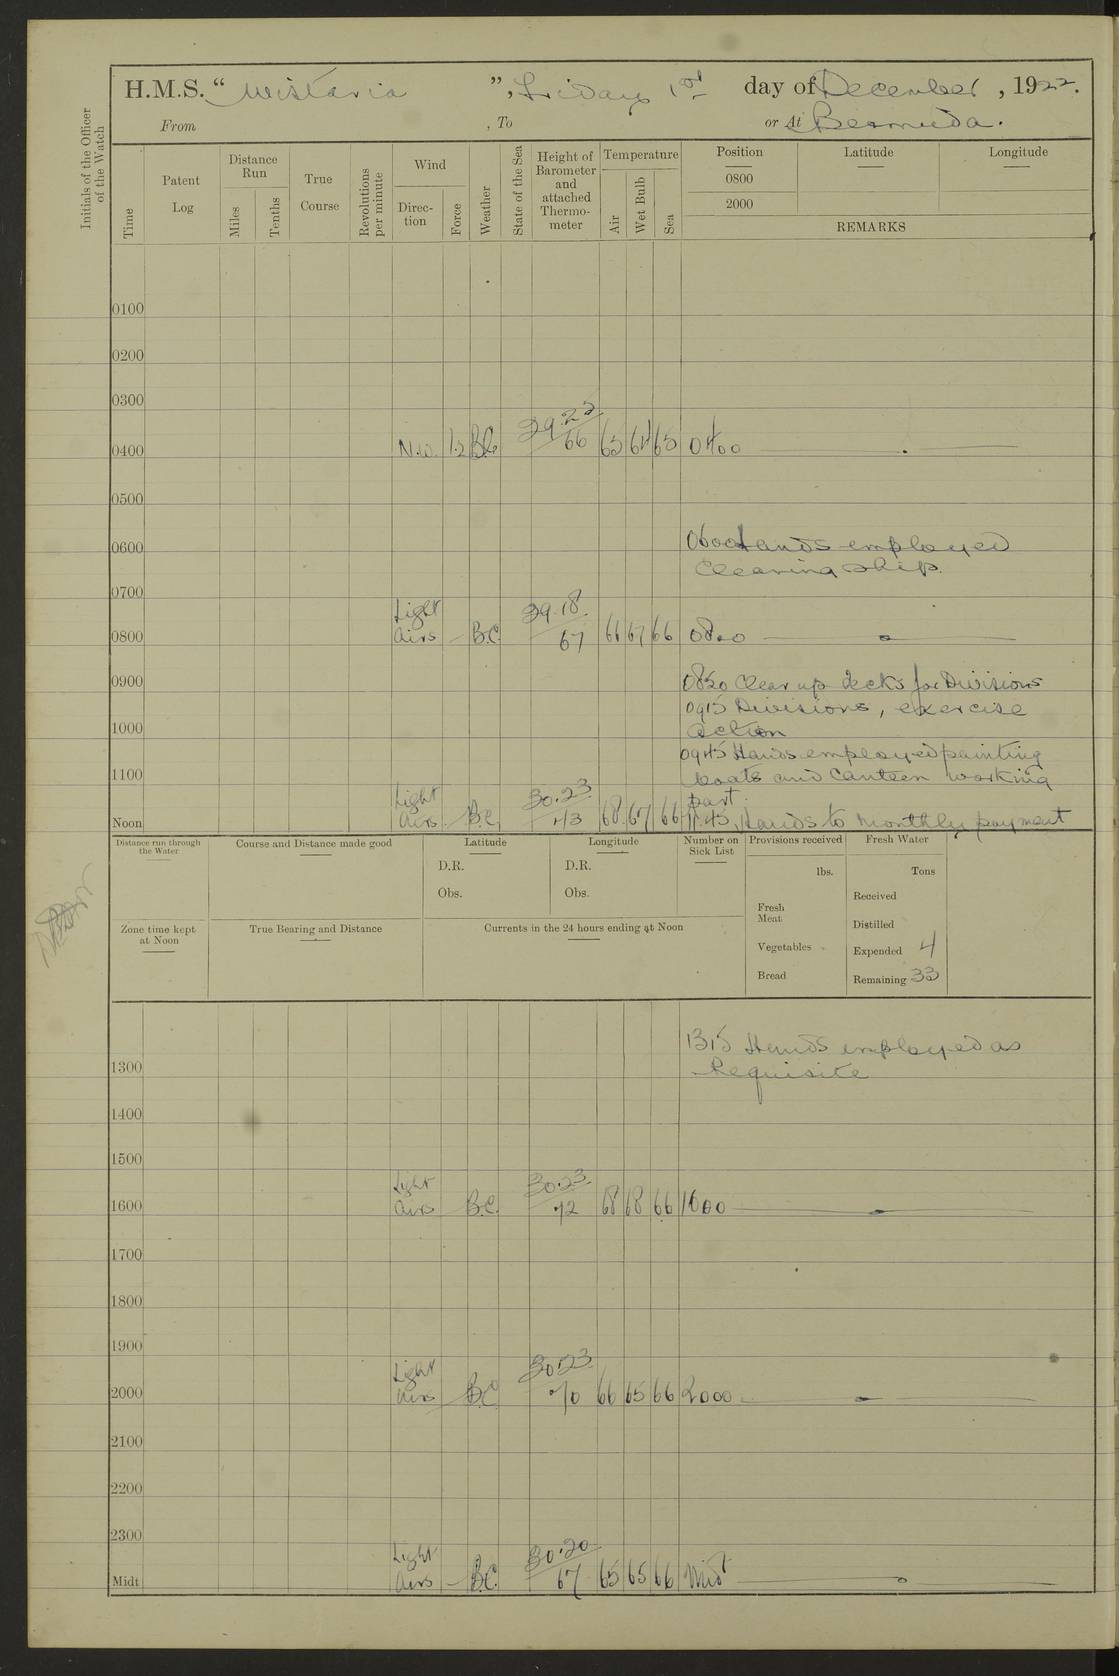 H.M.S. “ Wistaria ”, Friday 1st day of December, 1922.
From , To or At Bermuda.
Initials of the Officer of the Watch
Time
Patent Log
Distance Run
Miles
Tenths
True Course
Revolutions per minute
Wind
Direction
Force
Weather
State of the Sea
Height of Barometer and attached Thermometer
Temperature
Air
Wet Bulb
Sea
Position Latitude Longitude
0800
2000
REMARKS
0100
0200
0300
0400 N.W. 1.2 B.C. 29.22 66 65 64 65 0400
0500
0600 0600 Hands employed
Cleaning ship.
0700
0800 Light Airs B.C. 29.18 67 66 67 66 0800
0900 0850 Clear up decks for Divisions
0915 Divisions, exercise
1000 action
0945 Hands employed painting
1100 boats and Canteen working
part.
Noon Light Airs B.C. 30.23 73 68 67 66 1145 Hands to monthly payment
Distance run through the Water
Course and Distance made good
Latitude
D.R.
Obs.
Longitude
D.R.
Obs.
Number on Sick List
Provisions received
lbs.
Fresh Meat
Vegetables
Bread
Fresh Water
Tons
Received
Distilled
Expended 4
Remaining 33
Zone time kept at Noon
True Bearing and Distance
Currents in the 24 hours ending at Noon
1315 Hands employed as
1300 Requisite
1400
1500
1600 Light Airs B.C. 30.23 72 68 68 66 1600
1700
1800
1900
2000 Light Airs B.C. 30.23 70 66 65 66 2000
2100
2200
2300
Midt Light Airs B.C. 30.20 67 65 65 66 Mid